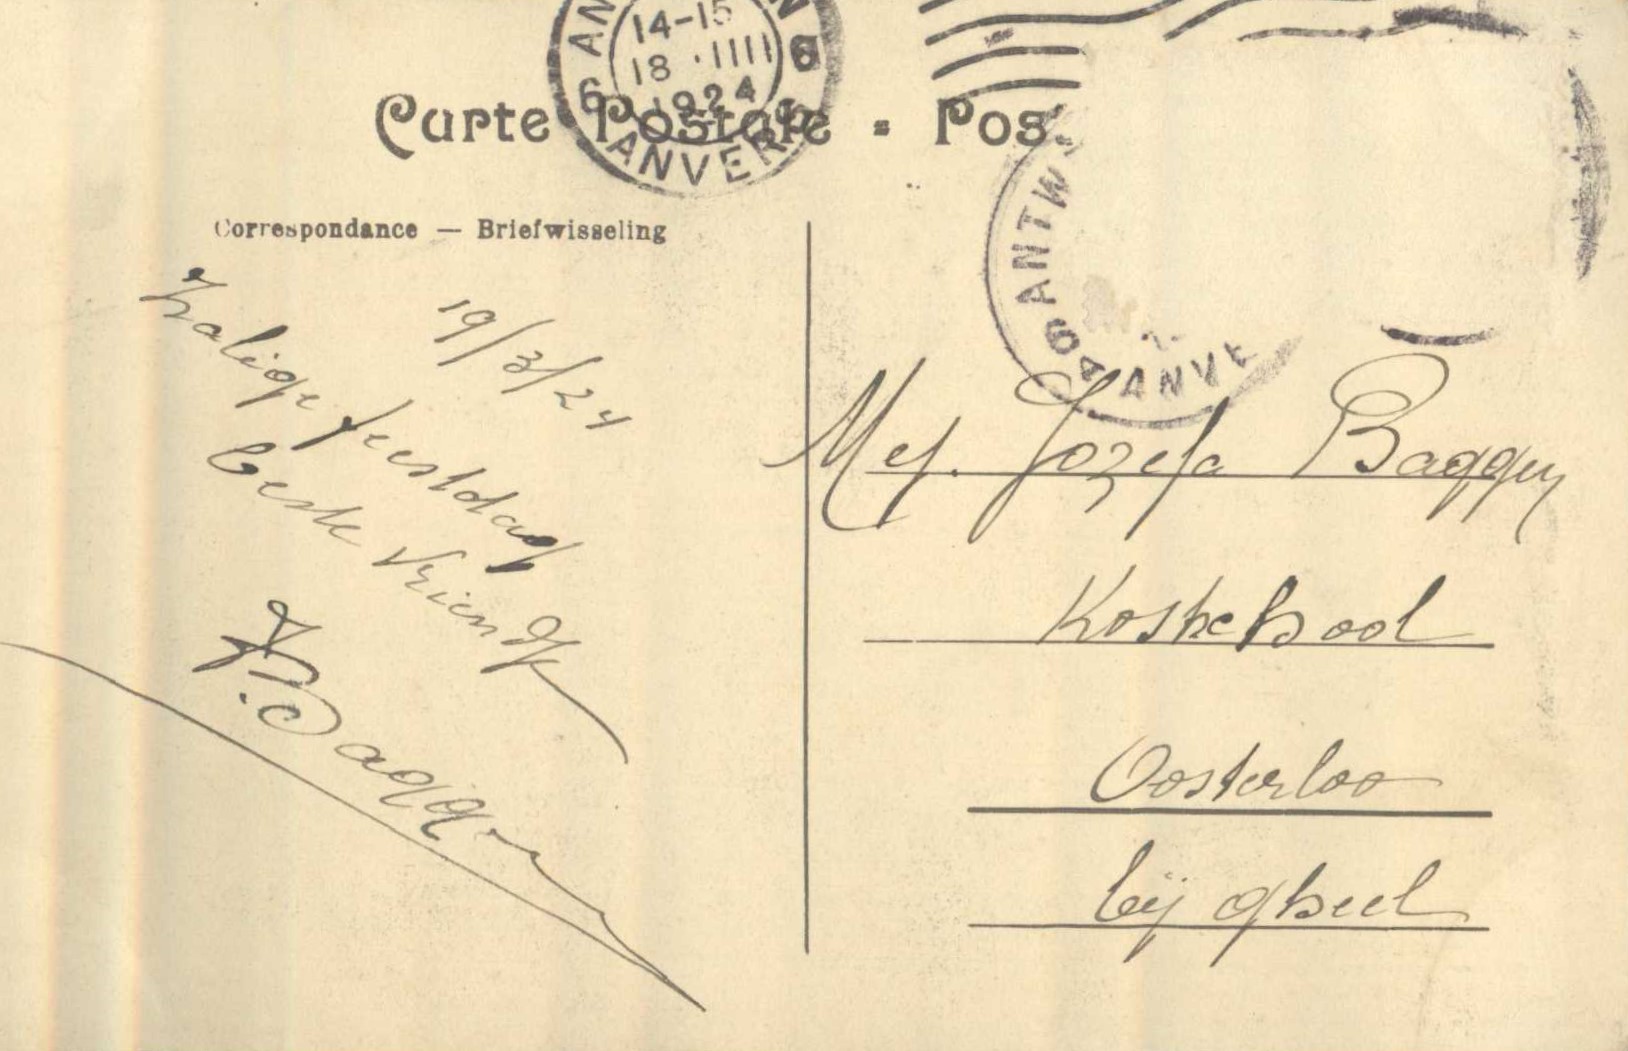 ANTWERPEN 6
14-15
18 · IIII
1924
6 ANVERS
Carte Postale - Pos
ANTW
6 ANVE
Correspondance — Briefwisseling
19/3/24
Zalige feestdag
beste Vriendje
J. Baggen
Mej. Jozefa Baggen
Oosterloo
bij Gheel